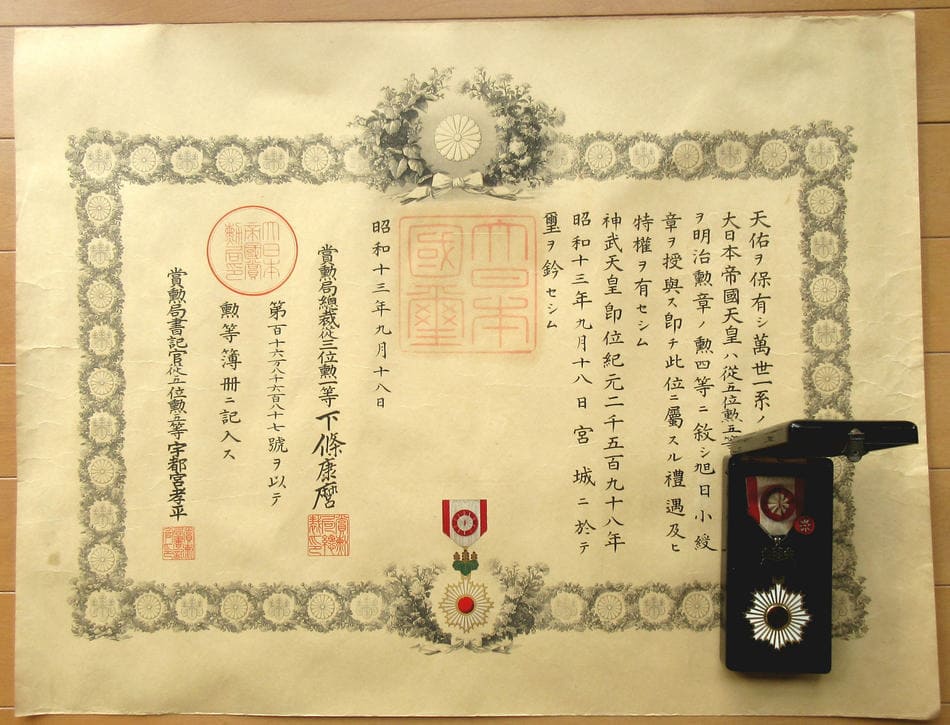 天佑ヲ保有シ萬世一系ノ
大日本帝國天皇ハ從五位勲五等
ヲ明治勲章ノ勲四等ニ敍シ旭日小綬
章ヲ授與ス卽チ此位ニ屬スル禮遇及ヒ
特權ヲ有セシム
神武天皇卽位紀元二千五百九十八年
昭和十三年九月十八日宮城ニ於テ
璽ヲ鈐セシム
大日本
國璽
昭和十三年九月十八日
賞勲局總裁從三位勲一等下條康麿
賞勲局總裁印
第百十六万八千六百八十七號ヲ以テ
勲等簿册ニ記入ス
大日本
帝國賞
勲局印
賞勲局書記官從五位勲五等宇都宮孝平